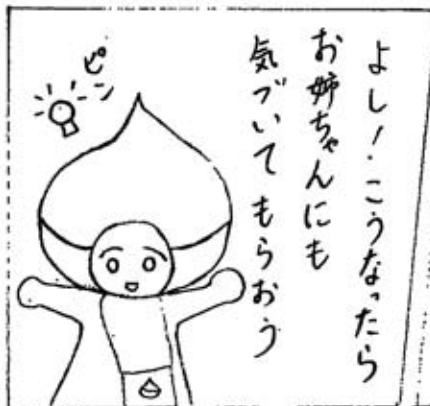 よし！こうなったら
お姉ちゃんにも
気づいてもらおう
ピーン